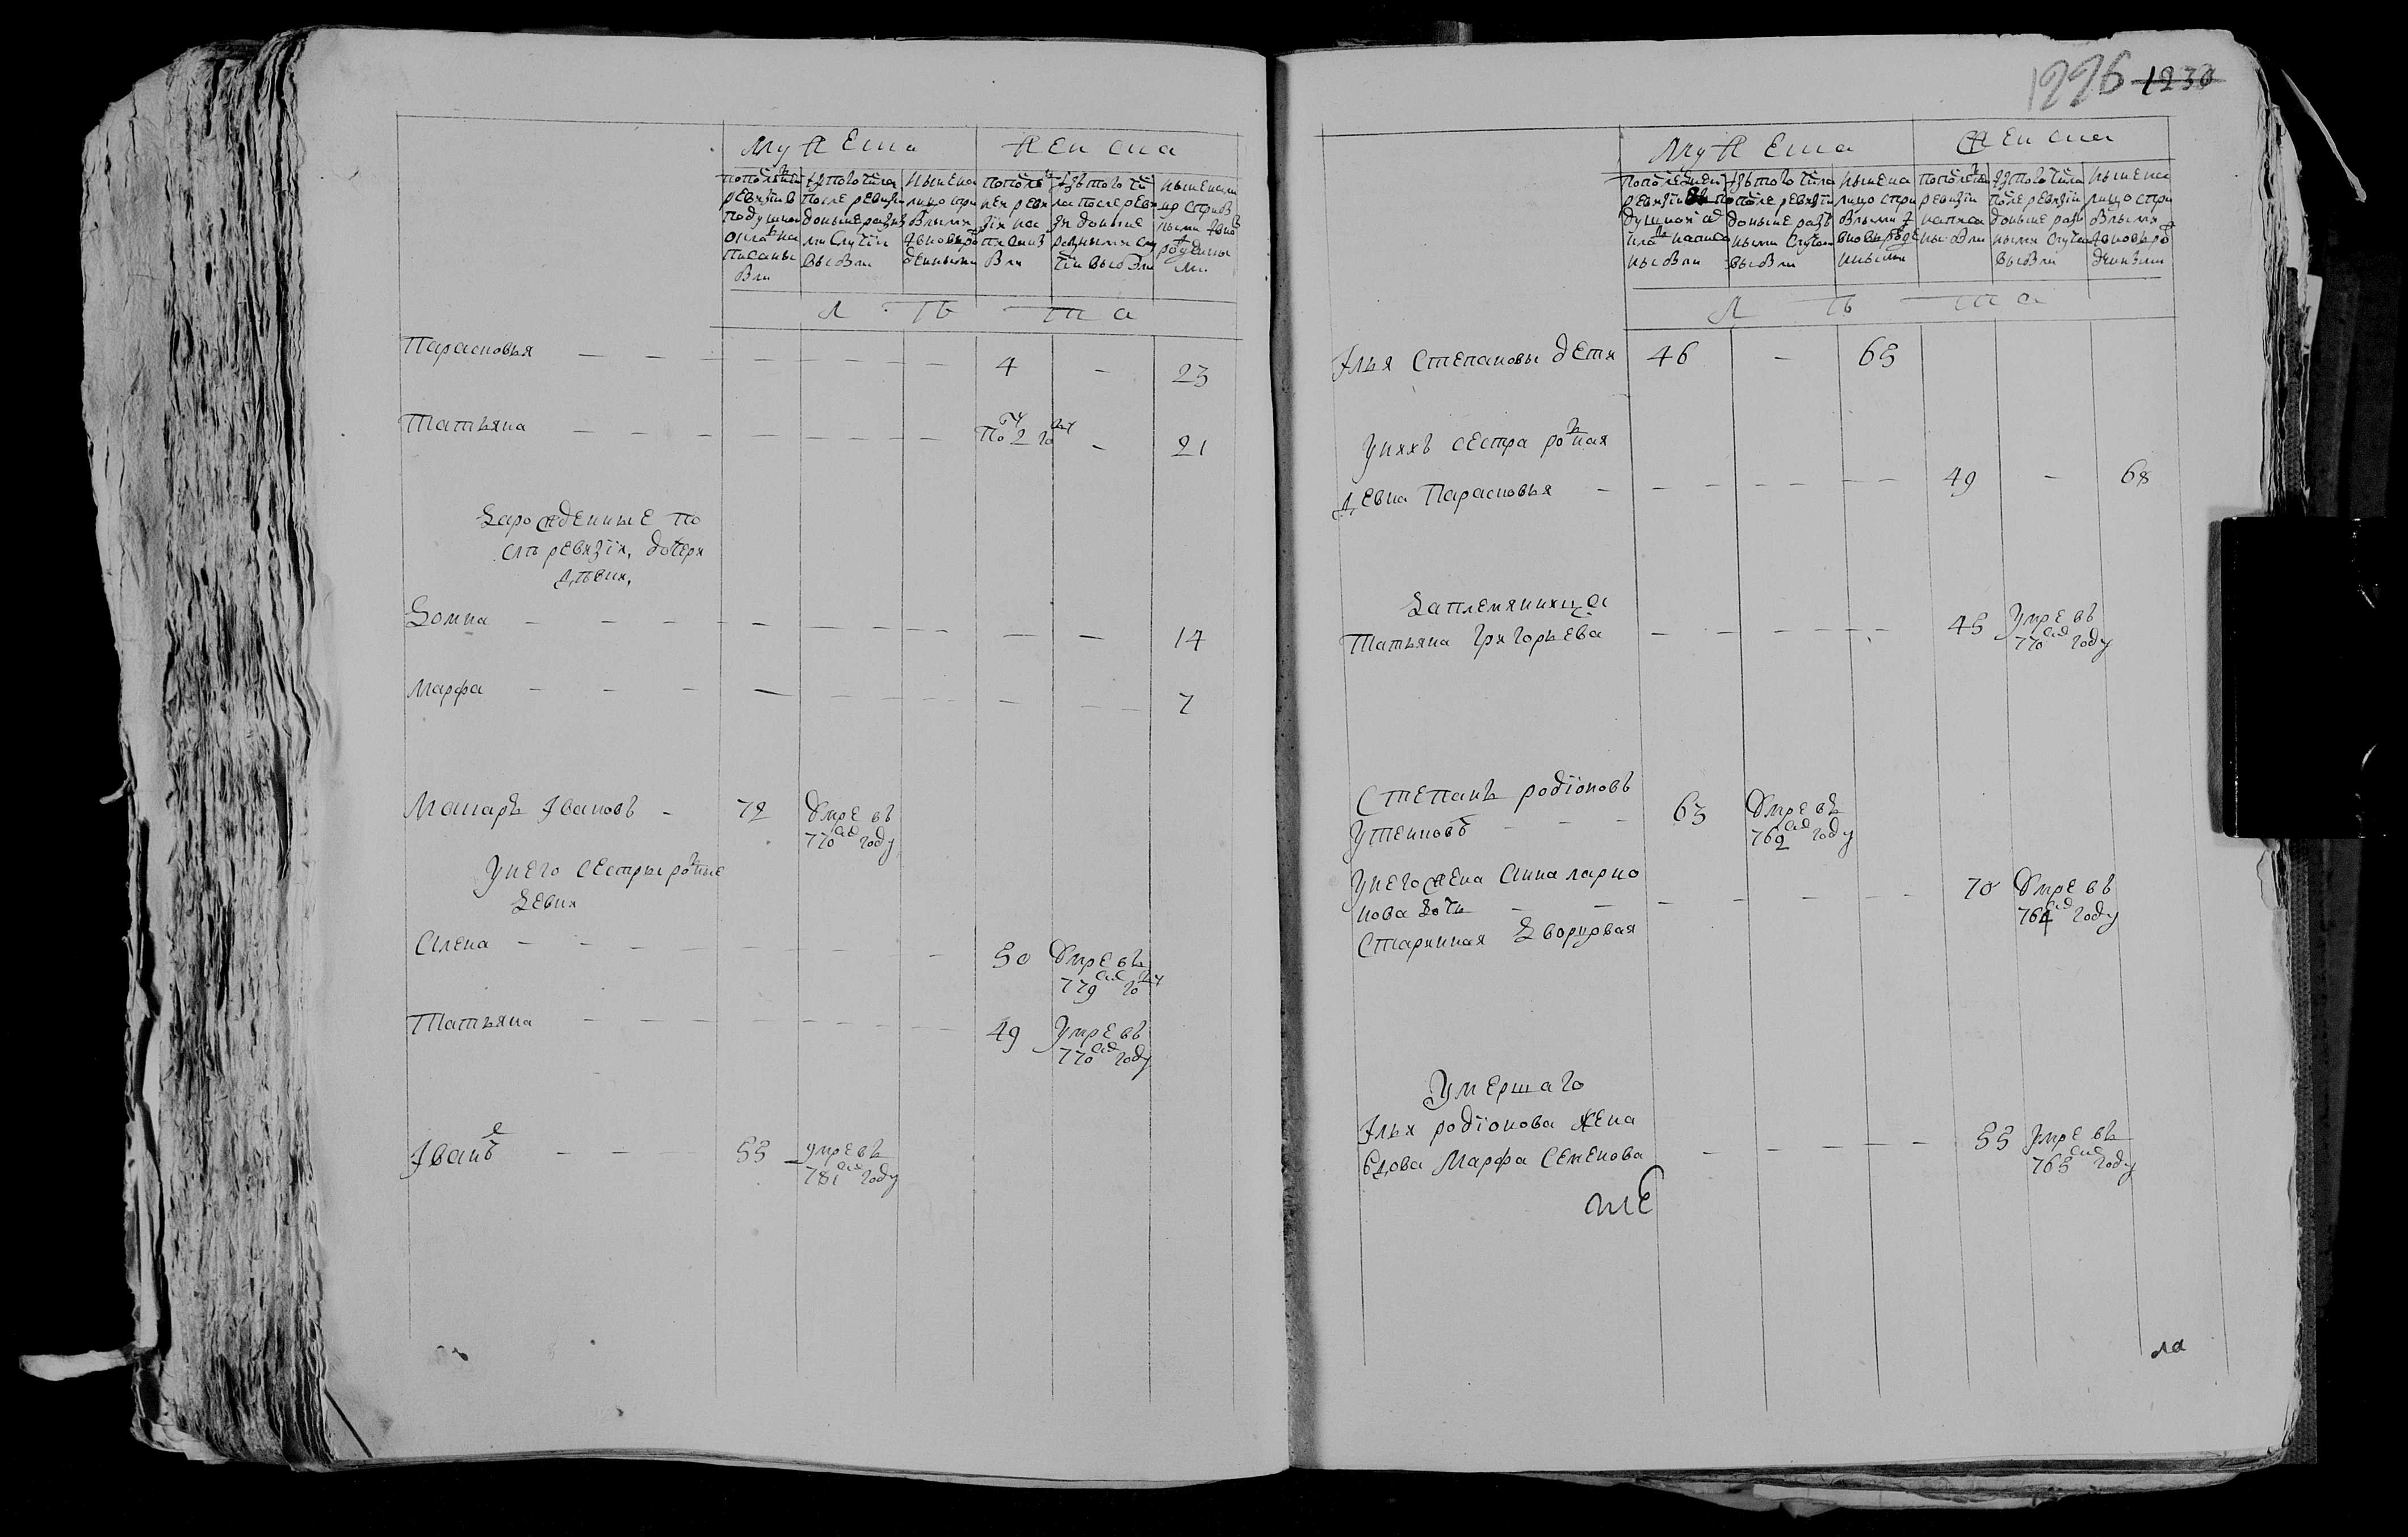 1226 1230
Мужеска Женска
по последней ревизии в подушной оклад написаны были
ис того числа после ревизии доныне разными случаи выбыли
ныне на лицо с прибылыми и вновь рожденными
по последней ревизии написаны были
ис того числа после ревизии доныне разными случаи выбыли
ныне на лицо с прибылыми и вновь рожденными
Л Ѣ Т а
Парасковья — — — — — — 4 — 23
Татьяна — — — — — — — полугоду — 21
Зарожденные по
слѣ ревизіи, дочери
дѣвки,
Домна — — — — — — — — — 14
Марфа — — — — — — — — 7
Макаръ Ивановъ — 72 Умре въ
770м году
У него сестры родные
девки
Алена — — — — — — 50 Умре въ
779м году
Татьяна — — — — — — — 49 Умре въ
770м году
Иванъ — — — 55 умре въ
781м году
Мужеска Женска
по последней ревизии в подушной оклад написаны были
ис того числа после ревизии доныне разными случаи выбыли
ныне на лицо с прибылыми и вновь рожденными
по последней ревизии написаны были
ис того числа после ревизии доныне разными случаи выбыли
ныне на лицо с прибылыми и вновь рожденными
Л Ѣ Т а
Илья Степановы дети 46 — 65
У нихъ сестра родная
девка Парасковья — — — — — — 49 — 68
Да племянница
Татьяна Григорьева — — — — — 45 Умре въ
770м году
Степанъ родіоновъ
Утенковъ — — — 63 Умре въ
762м году
У него жена Анна ларио
нова дочь — — — — — — 70 Умре въ
764м году
Старинная дворовая
Умершаго
Ильи родіонова жена
вдова Марфа Семенова — — — — 55 Умре въ
765м году
те
ла